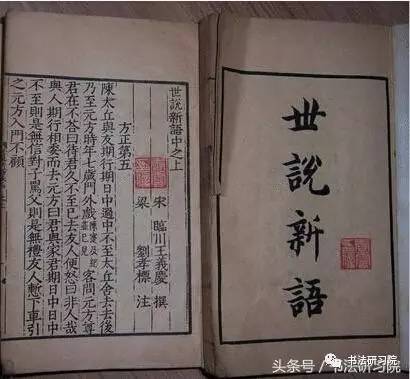 世說新語
世說新語中之上
宋 臨川王義慶 撰
梁 劉孝標 注
方正第五
陳太丘與友期行期日中過中不至太丘舍去去後
乃至元方時年七歲門外戲陳寔及紀並已見客問元方尊
君在不荅曰待君久不至已去友人便怒曰非人哉
與人期行相委而去元方曰君與家君期日中日中
不至則是無信對子罵父則是無禮友人慙下車引
之元方入門不顧
书法研习院
头条号/书法研习院